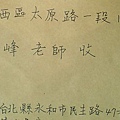 西區太原路一段
峰 老師 收
台北縣永和市民主路47